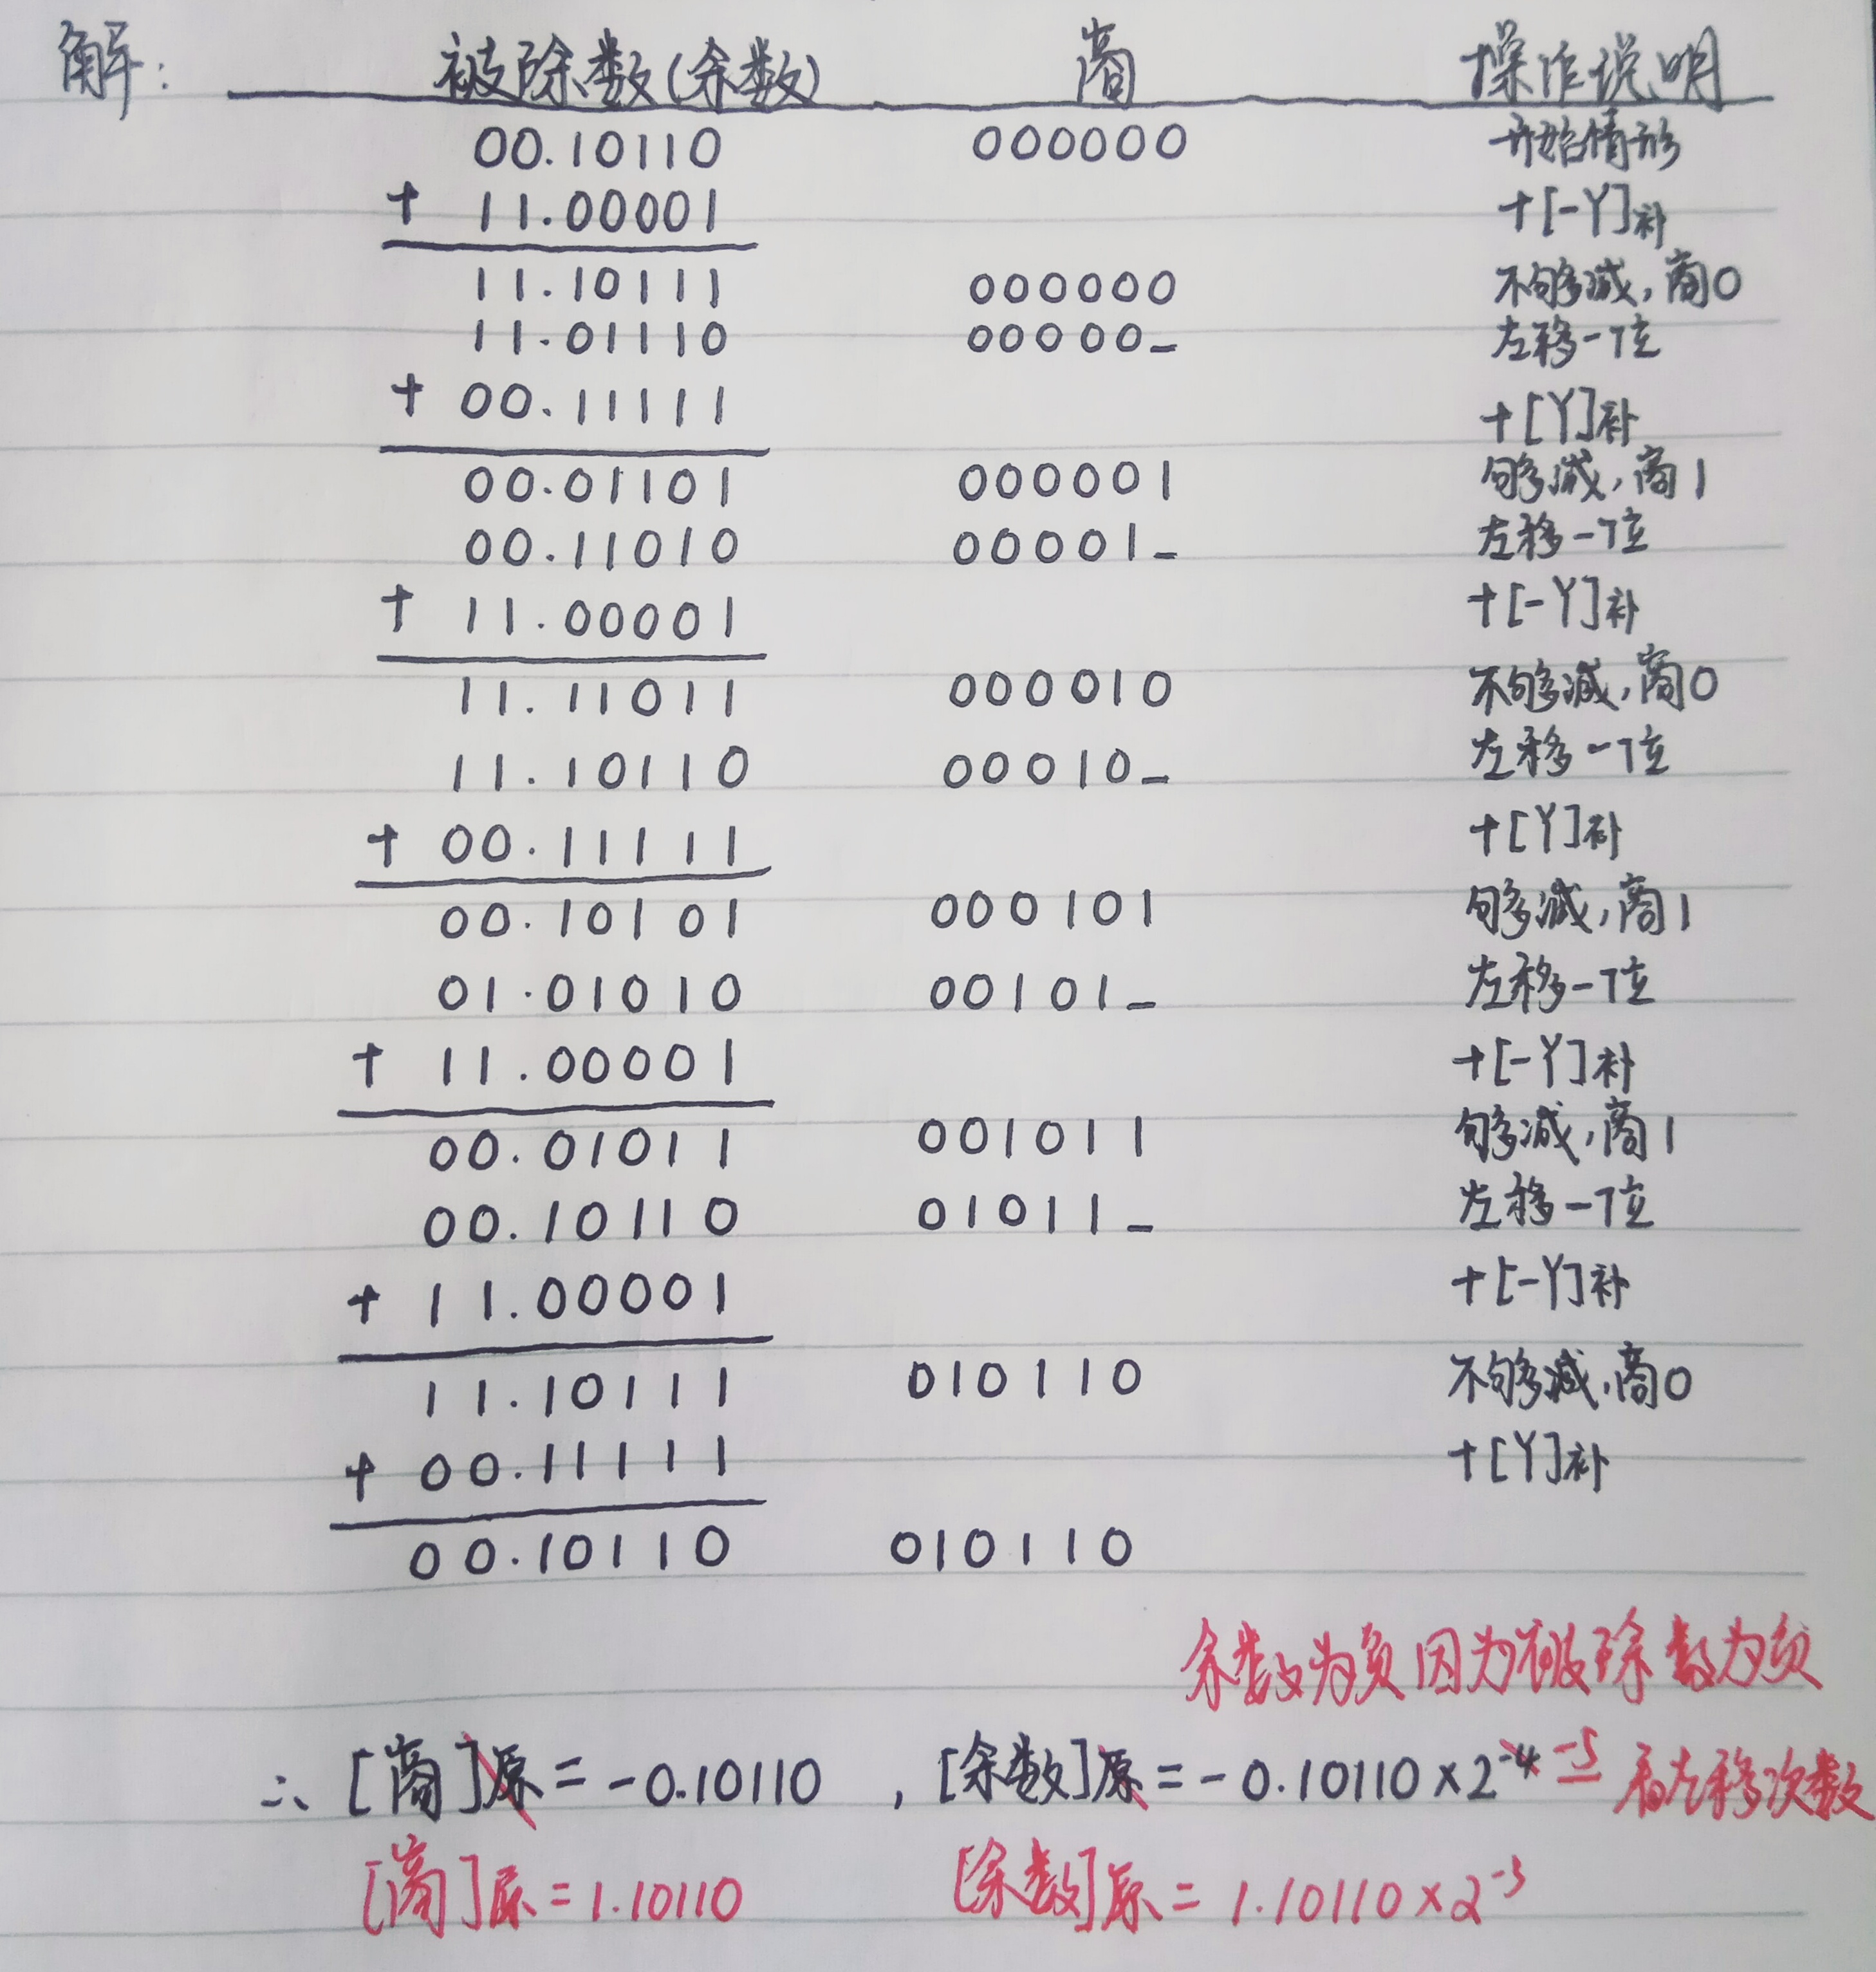 解: 被除数(余数) 商 操作说明
00.10110 000000 开始情形
+ 11.00001 +[-Y]补
11.10111 000000 不够减,商0
11.01110 00000_ 左移一位
+ 00.11111 +[Y]补
00.01101 000001 够减,商1
00.11010 00001_ 左移一位
+ 11.00001 +[-Y]补
11.11011 000010 不够减,商0
11.10110 00010_ 左移一位
+ 00.11111 +[Y]补
00.10101 000101 够减,商1
01.01010 00101_ 左移一位
+ 11.00001 +[-Y]补
00.01011 001011 够减,商1
00.10110 01011_ 左移一位
+ 11.00001 +[-Y]补
11.10111 010110 不够减,商0
+ 00.11111 +[Y]补
00.10110 010110
余数为负因为被除数为负
∴ [商]原 = -0.10110 , [余数]原 = -0.10110×2^-4 -5 看左移次数
[商]原 = 1.10110 [余数]原 = 1.10110×2^-5